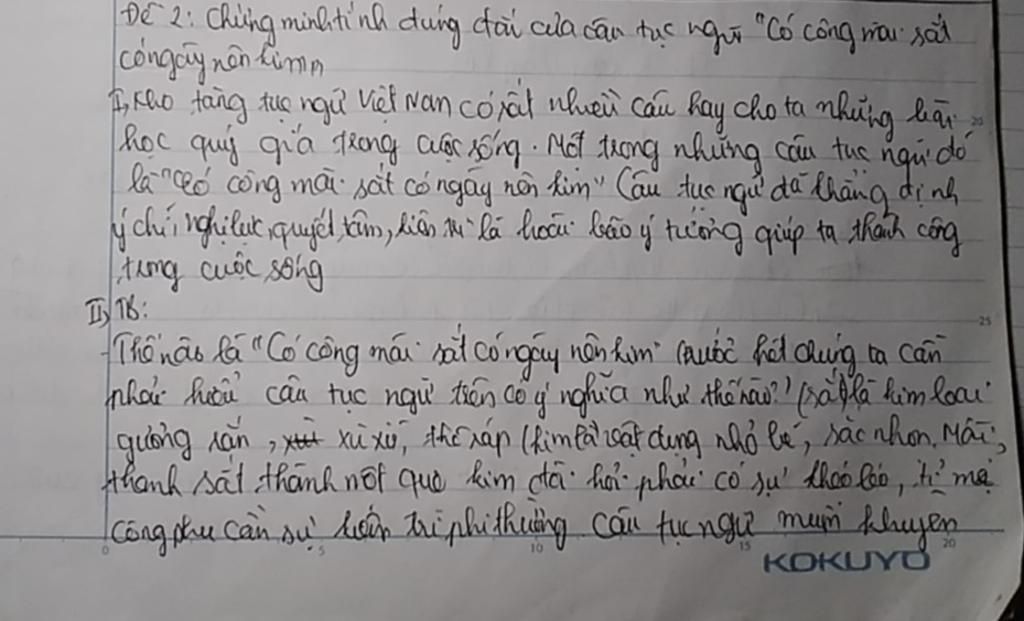 Đề 2: Chứng minh tính đúng đắn của câu tục ngữ "Có công mài sắt
có ngày nên kim"
I, Kho tàng tục ngữ Việt Nam có rất nhiều câu hay cho ta những bài
học quý giá trong cuộc sống. Một trong những câu tục ngữ đó
là "Có công mài sắt có ngày nên kim" Câu tục ngữ đã khẳng định
ý chí, nghị lực, quyết tâm, kiên trì là hoài bão ý tưởng giúp ta thành công
trong cuộc sống
II, TB:
- Thế nào là "Có công mài sắt có ngày nên kim" trước hết chúng ta cần
phải hiểu câu tục ngữ trên có ý nghĩa như thế nào? (sắt) là kim loại
cứng rắn, xù xì, thô ráp (kim là vật dụng nhỏ bé, sắc nhọn. Mài
thanh sắt thành một que kim đòi hỏi phải có sự khéo léo, tỉ mẩ
công phu cần sự kiên trì phi thường. Câu tục ngữ muốn khuyên
0 5 10 15 20
20
25
KOKUYO